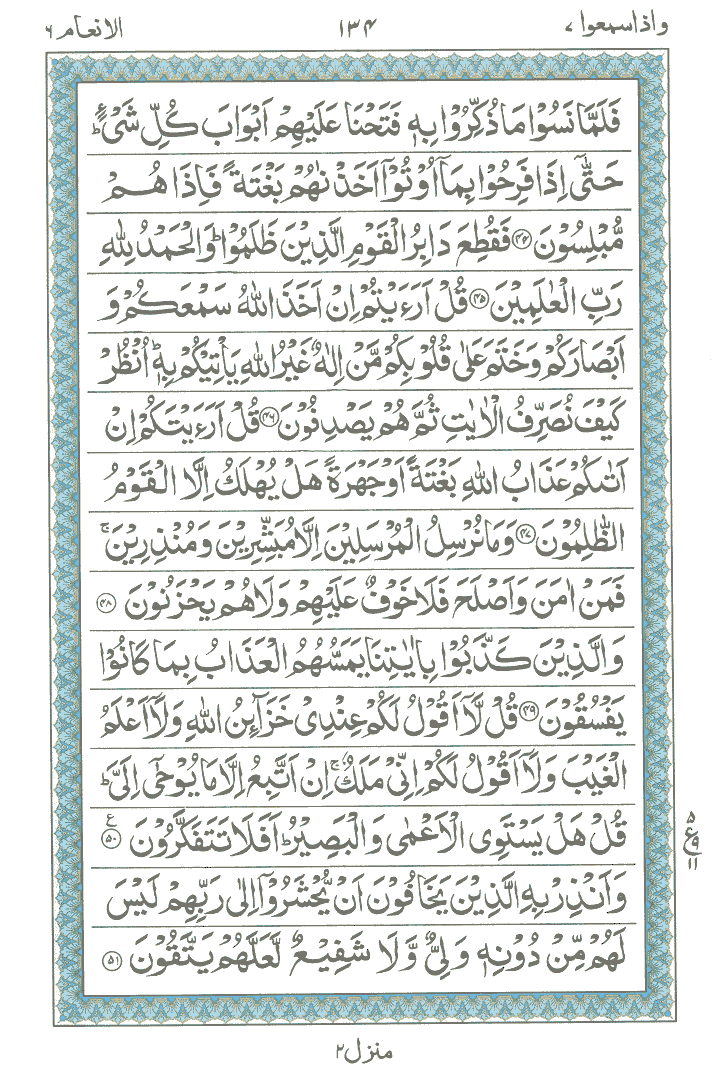 واذاسمعوا ۷ ۱۳۴ الانعام ۶
فَلَمَّا نَسُوْا مَا ذُكِّرُوْا بِهٖ فَتَحْنَا عَلَيْهِمْ اَبْوَابَ كُلِّ شَیْءٍ ؕ
حَتّٰۤی اِذَا فَرِحُوْا بِمَاۤ اُوْتُوْۤا اَخَذْنٰهُمْ بَغْتَةً فَاِذَا هُمْ
مُّبْلِسُوْنَ ﴿۴۴﴾ فَقُطِعَ دَابِرُ الْقَوْمِ الَّذِيْنَ ظَلَمُوْا ؕ وَالْحَمْدُ لِلّٰهِ
رَبِّ الْعٰلَمِيْنَ ﴿۴۵﴾ قُلْ اَرَءَيْتُمْ اِنْ اَخَذَ اللّٰهُ سَمْعَكُمْ وَ
اَبْصَارَكُمْ وَخَتَمَ عَلٰی قُلُوْبِكُمْ مَّنْ اِلٰهٌ غَيْرُ اللّٰهِ يَاْتِيْكُمْ بِهٖ ؕ اُنْظُرْ
كَيْفَ نُصَرِّفُ الْاٰيٰتِ ثُمَّ هُمْ يَصْدِفُوْنَ ﴿۴۶﴾ قُلْ اَرَءَيْتَكُمْ اِنْ
اَتٰىكُمْ عَذَابُ اللّٰهِ بَغْتَةً اَوْ جَهْرَةً هَلْ يُهْلَكُ اِلَّا الْقَوْمُ
الظّٰلِمُوْنَ ﴿۴۷﴾ وَمَا نُرْسِلُ الْمُرْسَلِيْنَ اِلَّا مُبَشِّرِيْنَ وَمُنْذِرِيْنَ ۚ
فَمَنْ اٰمَنَ وَاَصْلَحَ فَلَا خَوْفٌ عَلَيْهِمْ وَلَا هُمْ يَحْزَنُوْنَ ﴿۴۸﴾
وَالَّذِيْنَ كَذَّبُوْا بِاٰيٰتِنَا يَمَسُّهُمُ الْعَذَابُ بِمَا كَانُوْا
يَفْسُقُوْنَ ﴿۴۹﴾ قُلْ لَّاۤ اَقُوْلُ لَكُمْ عِنْدِیْ خَزَآئِنُ اللّٰهِ وَلَاۤ اَعْلَمُ
الْغَيْبَ وَلَاۤ اَقُوْلُ لَكُمْ اِنِّیْ مَلَكٌ ۚ اِنْ اَتَّبِعُ اِلَّا مَا يُوْحٰۤی اِلَیَّ ؕ
قُلْ هَلْ يَسْتَوِی الْاَعْمٰی وَالْبَصِيْرُ ؕ اَفَلَا تَتَفَكَّرُوْنَ ﴿۵۰﴾ ع
۵ ع ۹ ۱۱
وَاَنْذِرْ بِهِ الَّذِيْنَ يَخَافُوْنَ اَنْ يُّحْشَرُوْۤا اِلٰی رَبِّهِمْ لَيْسَ
لَهُمْ مِّنْ دُوْنِهٖ وَلِیٌّ وَّلَا شَفِيْعٌ لَّعَلَّهُمْ يَتَّقُوْنَ ﴿۵۱﴾
منزل ۲